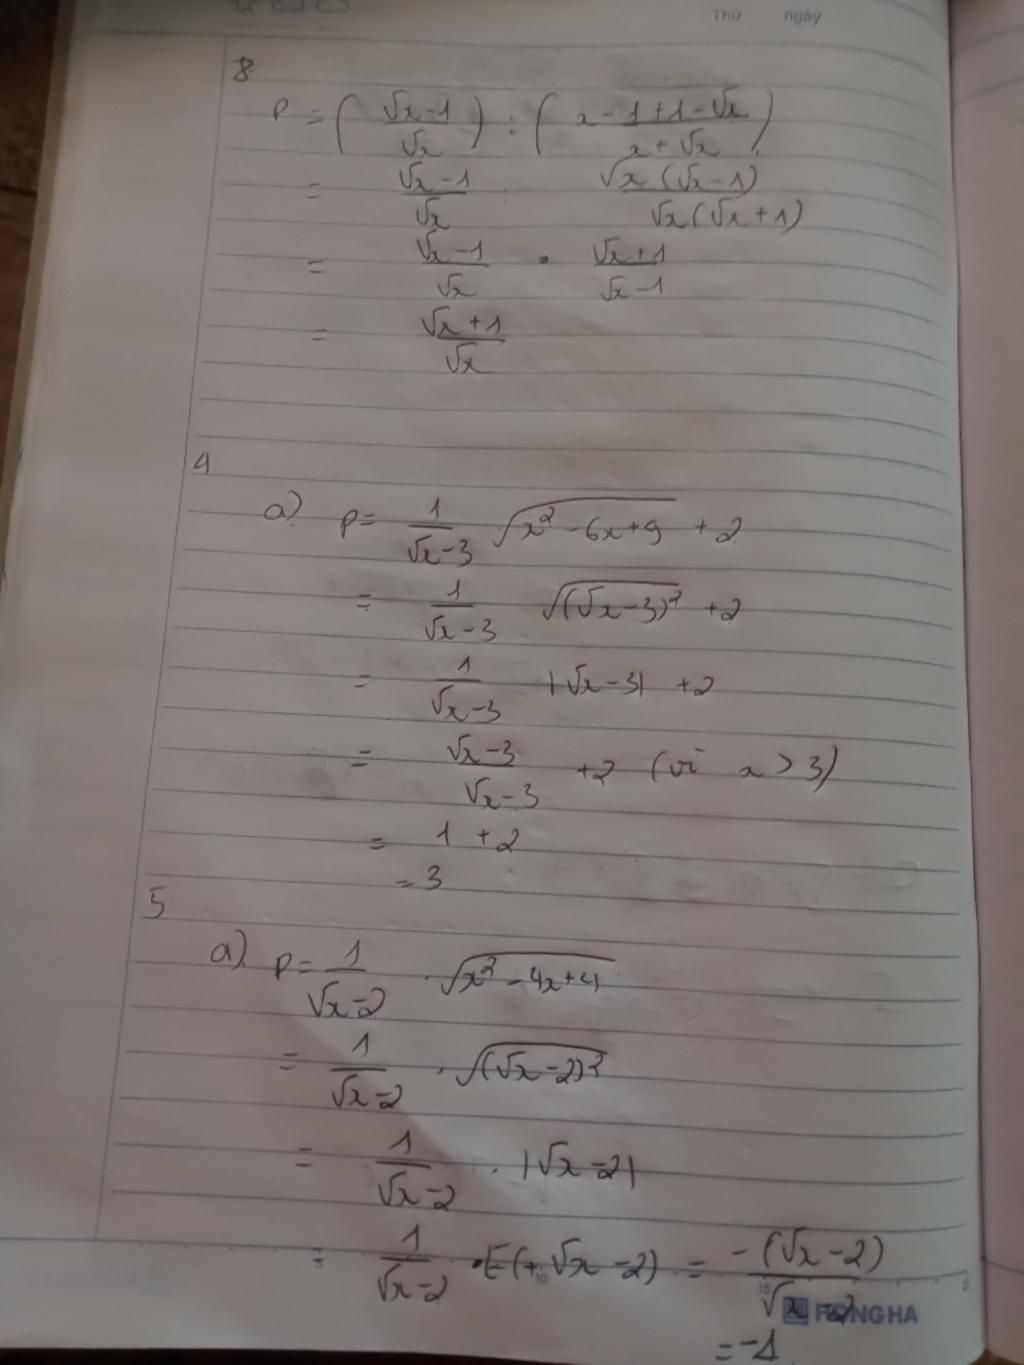 Thứ ngày
8
P = (√x-1/√x) : (x-1+1-√x/x+√x)
= √x-1/√x √x(√x-1)/√x(√x+1)
= √x-1/√x · √x+1/√x-1
= √x+1/√x
4
a) P= 1/√x-3 √x²-6x+9 +2
= 1/√x-3 √(√x-3)² +2
= 1/√x-3 |√x-3| +2
= √x-3/√x-3 +2 (vì x>3)
= 1+2
=3
5
a) P= 1/√x-2 · √x²-4x+4
= 1/√x-2 · √(√x-2)²
= 1/√x-2 · |√x-2|
= 1/√x-2 · (√x-2) = -(√x-2)/√x-2
5 10 15
HONG HA
=-1